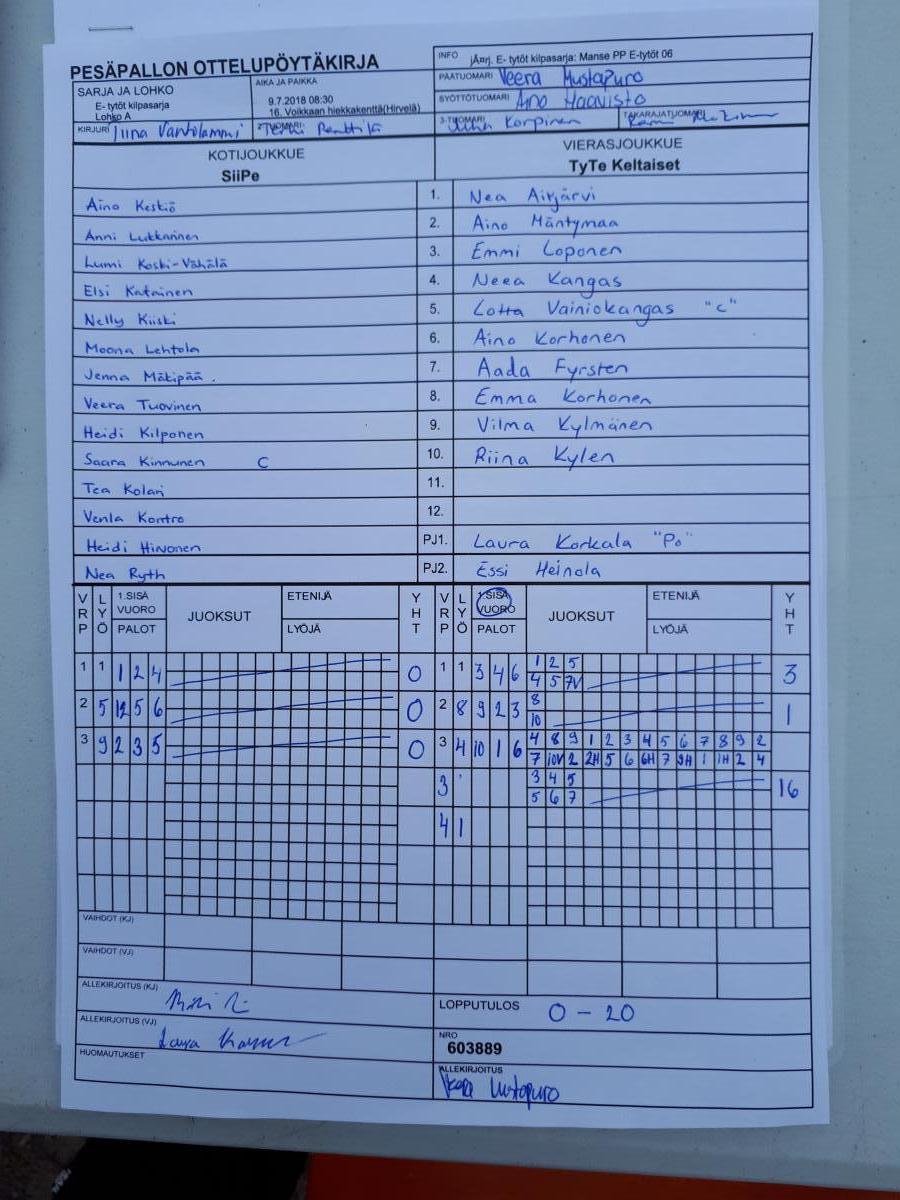 PESÄPALLON OTTELUPÖYTÄKIRJA
INFO jÄrrj. E- tytöt kilpasarja: Manse PP E-tytöt 06
SARJA JA LOHKO
E- tytöt kilpasarja
Lohko A
AIKA JA PAIKKA
9.7.2018 08:30
16. Voikkaan hiekkakenttä(Hirvelä)
PÄÄTUOMARI Veera Mustapuro
SYÖTTÖTUOMARI Aino Haavisto
KIRJURI Tiina Vantolammi
2-TUOMARI Penttilä
3-TUOMARI Juha Korpinen
TAKARAJATUOMARI
KOTIJOUKKUE
SiiPe
VIERASJOUKKUE
TyTe Keltaiset
Aino Keskiö 1. Nea Airjärvi
Anni Lukkarinen 2. Aino Mäntymaa
Lumi Koski-Vähälä 3. Emmi Loponen
Elsi Katainen 4. Neea Kangas
Nelly Kiiski 5. Lotta Vainiokangas "C"
Moona Lehtola 6. Aino Korhonen
Jenna Mäkipää . 7. Aada Fyrsten
Veera Tuovinen 8. Emma Korhonen
Heidi Kilponen 9. Vilma Kylmänen
Saara Kinnunen C 10. Riina Kylen
Tea Kolari 11.
Venla Kontro 12.
Heidi Hirvonen PJ1. Laura Korkala "Po"
Nea Ryth PJ2. Essi Heinola
VRP LYÖ 1.SISÄ VUORO PALOT JUOKSUT ETENIJÄ LYÖJÄ YHT VRP LYÖ 1.SISÄ VUORO PALOT JUOKSUT ETENIJÄ LYÖJÄ YHT
1 1 1 2 4 0 1 1 3 4 6 1 2 5 3
4 5 7V
2 5 12 5 6 0 2 8 9 2 3 8 1
10
3 9 2 3 5 0 3 4 10 1 6 4 8 9 1 2 3 4 5 6 7 8 9 2
7 10V 2 2H 5 6 6H 7 9H 1 1H 2 4
3 3 4 5 16
5 6 7
4 1
VAIHDOT (KJ)
VAIHDOT (VJ)
ALLEKIRJOITUS (KJ)
LOPPUTULOS 0 - 20
ALLEKIRJOITUS (VJ) Laura
NRO
603889
HUOMAUTUKSET
ALLEKIRJOITUS
Veera Mustapuro